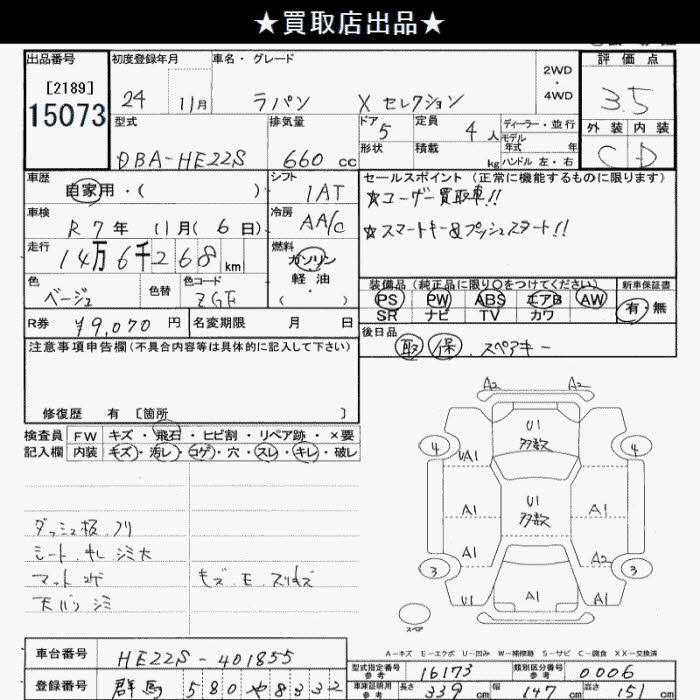 ★買取店出品★
出品番号
[2189]
15073
初度登録年月
24 11月
車名・グレード
ラパン Xセレクション
2WD
・
4WD
評価点
3.5
外装 内装
C D
型式
DBA-HE22S
排気量
660 cc
ドア
5
形状
定員
4人
積載
kg
ディーラー・並行
モデル
年式 年
ハンドル 左・右
車歴
自家用・( )
シフト
1AT
車検
R7年 11月(6日)
冷房
AA/C
走行
14万6千268km
燃料
ガソリン
軽油
( )
色
ベージュ
色替
色コード
ZGF
セールスポイント(正常に機能するものに限ります)
★ユーザー買取車!!
★スマートキー&プッシュスタート!!
装備品(純正品に限り○をつけてください)
PS PW ABS エアB AW
SR ナビ TV カワ
新車保証書
有・無
R券 ¥9,070円
名変期限 月 日
後日品
取 保 スペアキー
注意事項申告欄(不具合内容等は具体的に記入して下さい)
修復歴 有 [箇所 ]
検査員
記入欄
FW キズ・飛石・ヒビ割・リペア跡・×要
内装 キズ・汚レ・コゲ・穴・スレ・キレ・破レ
シート キレ シミ大
マット コゲ
天バリ シミ
キズ・E・スリキズ
A2 A2
4 U1 多数 4
UA1
A1 U1 多数 A1
A1 A2
3 3
U1 A1 A1
スペア
A-キズ E-エクボ U-凹み W-補修跡 S-サビ C-腐食 XX-交換済
車台番号 HE22S-401855
登録番号 群馬 580 や 8332
型式指定番号
参考
16173
類別区分番号
参考
0006
車庫証明用
参考
長さ 339cm 幅 147cm 高さ 151cm